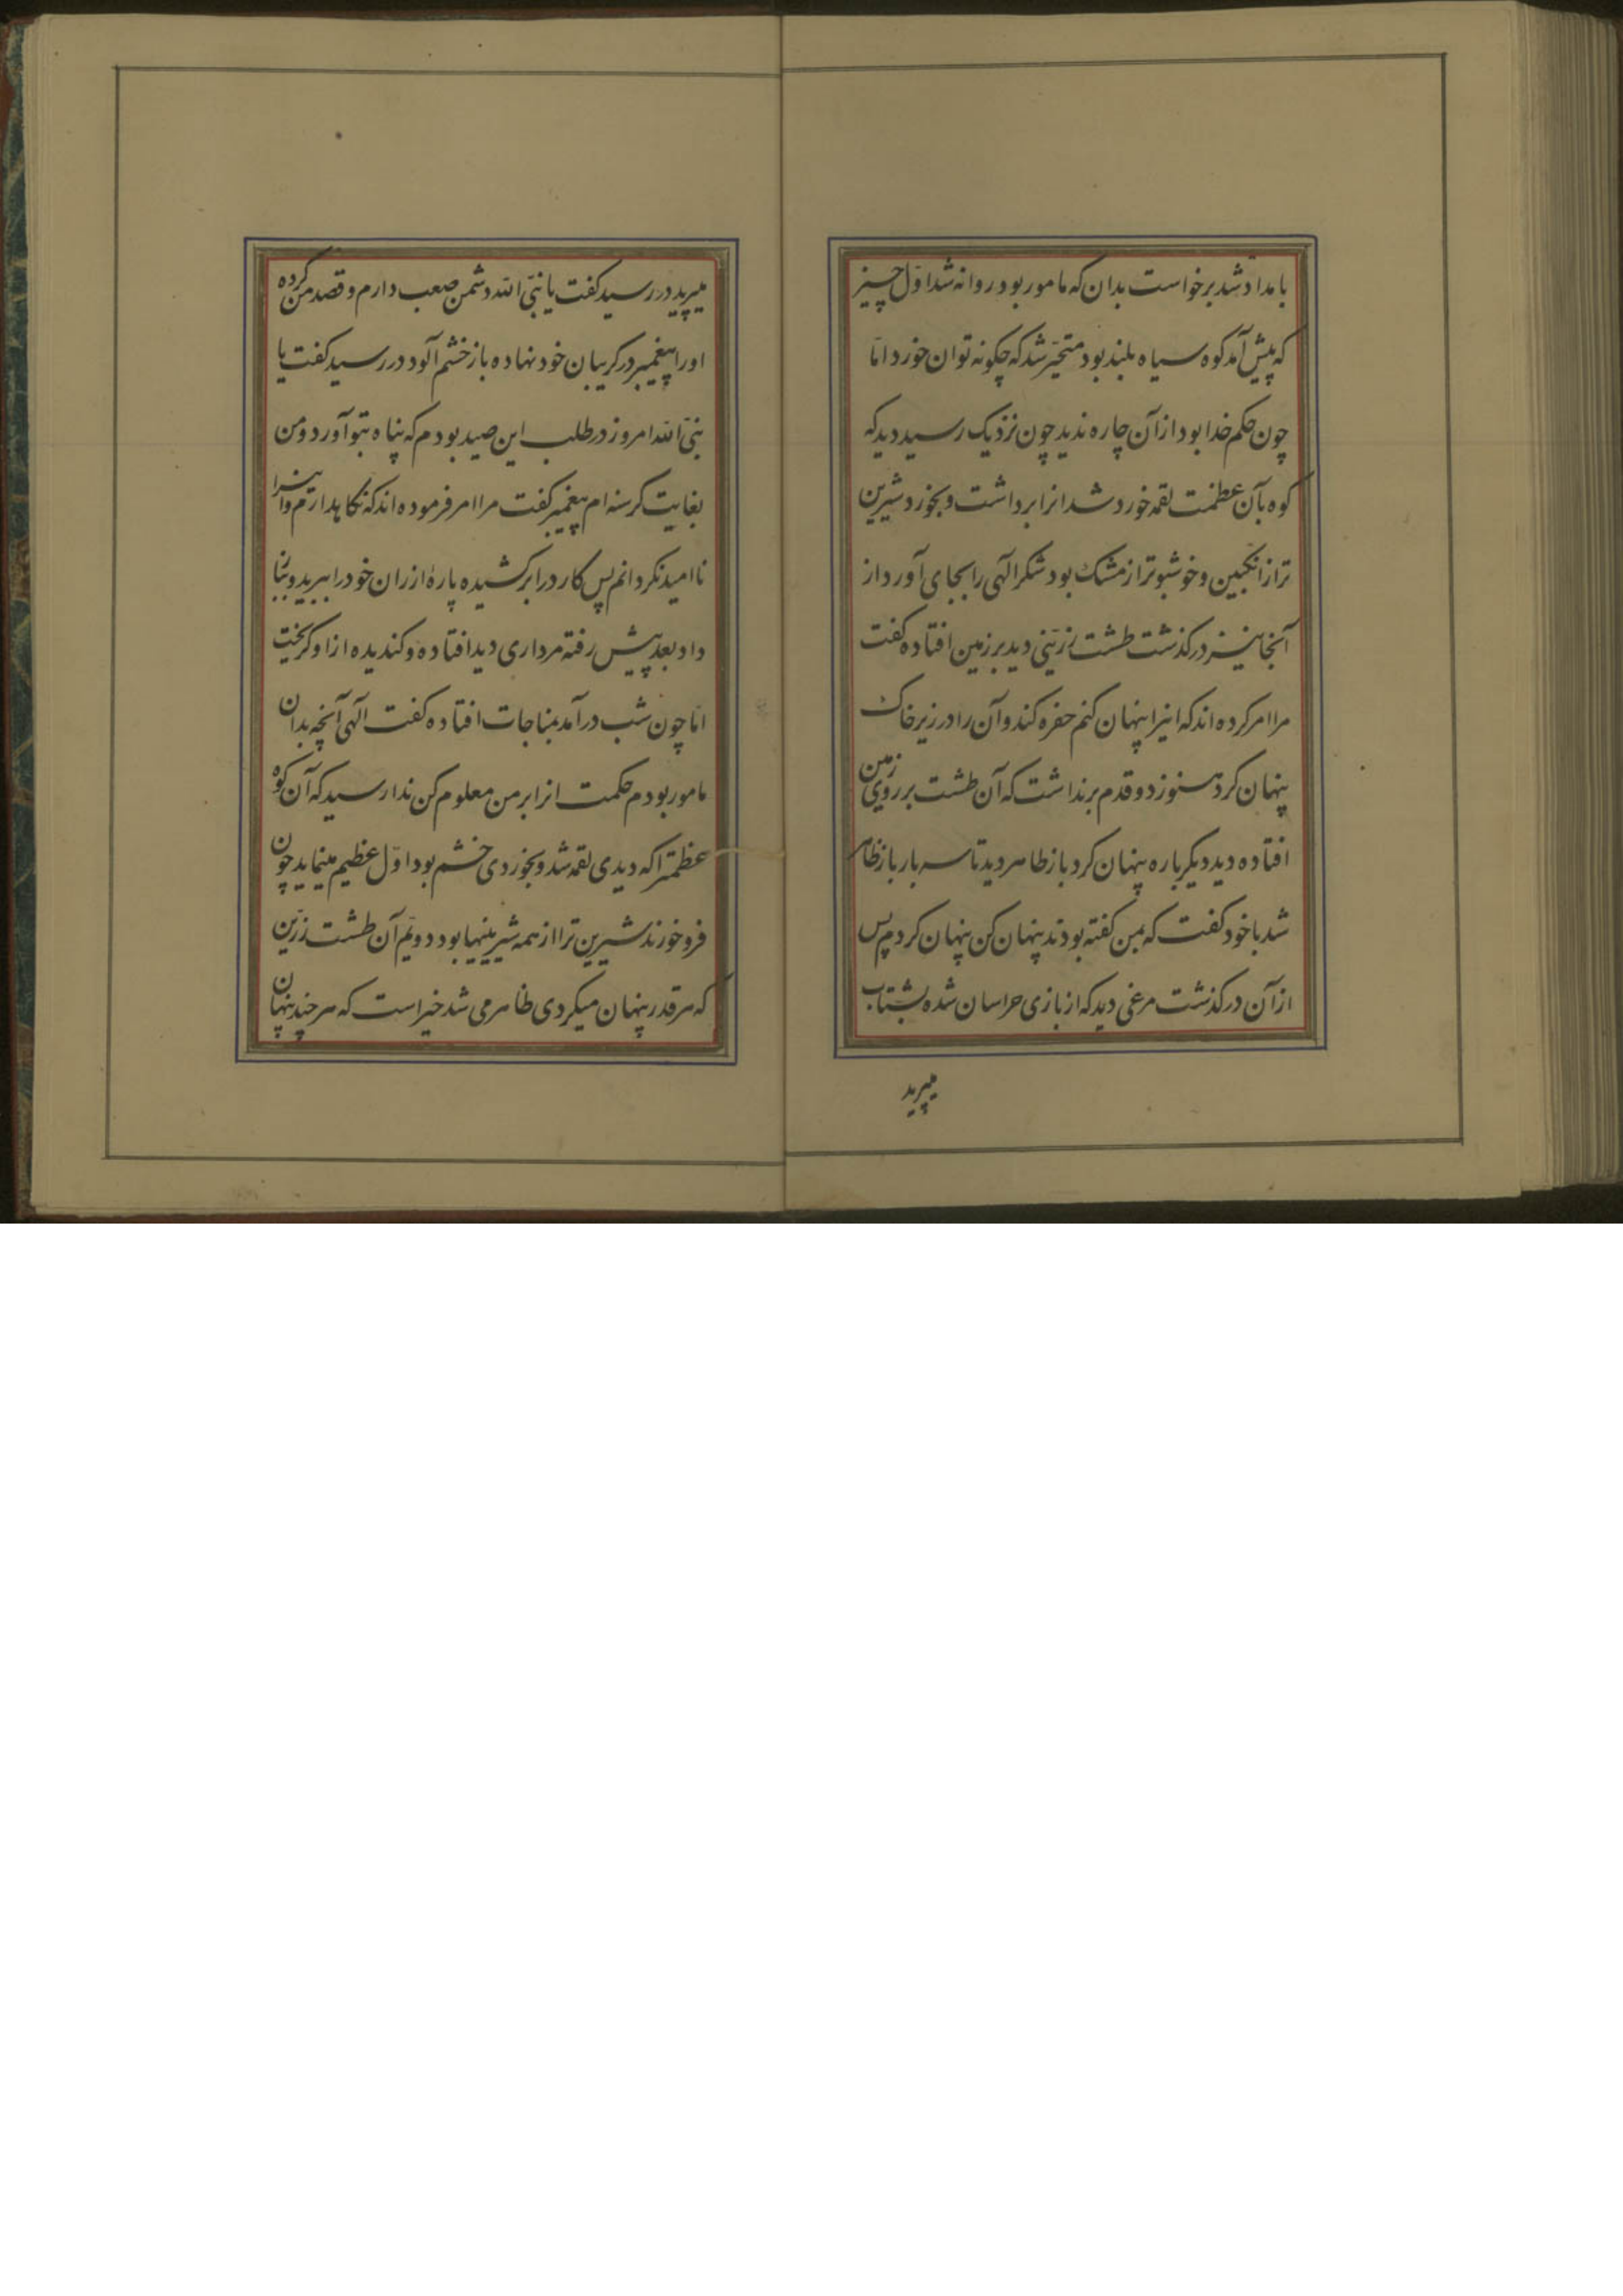 بامداد شد برخواست بدان که مامور بود روانه شد اوّل چیز
که پیش آمد کوه سیاه بلند بود متحیّر شد که چکونه توان خورد امّا
چون حکم خدا بود از آن چاره ندید چون نزدیک رسید دید که
کوه بآن عظمت لقمه خورد شد انرا برداشت و بخورد شیرین
تر از انکبین و خوشبوتر از مشک بود شکر الهی را بجای آورد از
آنجا نیز درکذشت طشت زرّینی دید بر زمین افتاده کفت
مرا امر کرده اند که اینرا پنهان کنم حفره کند و آن را در زیر خاک
پنهان کرد هنوز دو قدم برنداشت که آن طشت بر روی زمین
افتاده دید دیکر باره پنهان کرد باز ظاهر دید تا سه بار باز ظاهر
شد با خود کفت که بمن کفته بودند پنهان کن پنهان کردم پس
از آن درکذشت مرغی دید که از بازی حراسان شده بشتاب
میپرید
میپرید در رسید کفت یا نبیّ الله دشمن صعب دارم و قصد من کرده
او را پیغمبر در کریبان خود نهاده باز خشم آلود در رسید کفت یا
نبیّ الله امروز در طلب این صید بودم که پناه بتو آورد و من
بغایت کرسنه ام پیغمبر کفت مرا امر فرموده اند که نکاهدارم و اینرا
ناامید نکردانم پس کارد را برکشیده پارهٔ از ران خود را ببرید و بباز
داد بعد پیش رفته مرداری دید افتاده و کندیده از او کریخت
امّا چون شب درآمد بمناجات افتاده کفت الهی آنچه بدان
مامور بودم حکمت انرا بر من معلوم کن ندا رسید که آن کوه
عظمترا که دیدی لقمه شد و بخوردی خشم بود اوّل عظیم مینماید چون
فرو خورند شیرین ترا از همه شیرینیها بود دویّم آن طشت زرّین
که هر قدر پنهان میکردی ظاهر می شد خیر است که هر چند پنهان